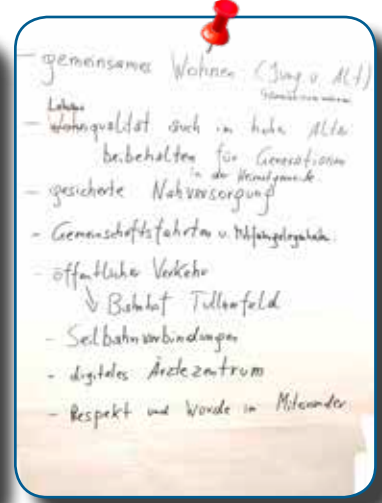 - gemeinsames Wohnen (Jung u. Alt)
Lebens
- Wohnqualität auch im hohen Alter
beibehalten für Generationen
in der Heimatgemeinde.
- gesicherte Nahversorgung
- Gemeinschaftsfahrten u. Mitfahrgelegenheiten
- öffentlicher Verkehr
↳ Bahnhof Tullnerfeld
- Seilbahnverbindungen
- digitales Ärztezentrum
- Respekt und Würde im Miteinander